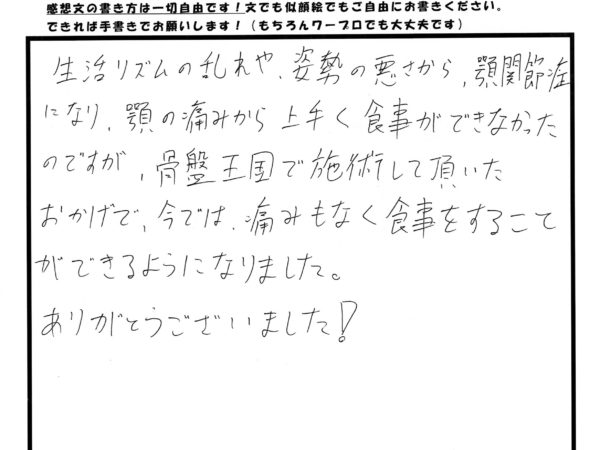 感想文の書き方は一切自由です！文でも似顔絵でもご自由にお書きください。
できれば手書きでお願いします！（もちろんワープロでも大丈夫です）
生活リズムの乱れや、姿勢の悪さから、顎関節症
になり、顎の痛みから上手く食事ができなかった
のですが、骨盤王国で施術して頂いた
おかげで、今では、痛みもなく食事をすること
ができるようになりました。
ありがとうございました！